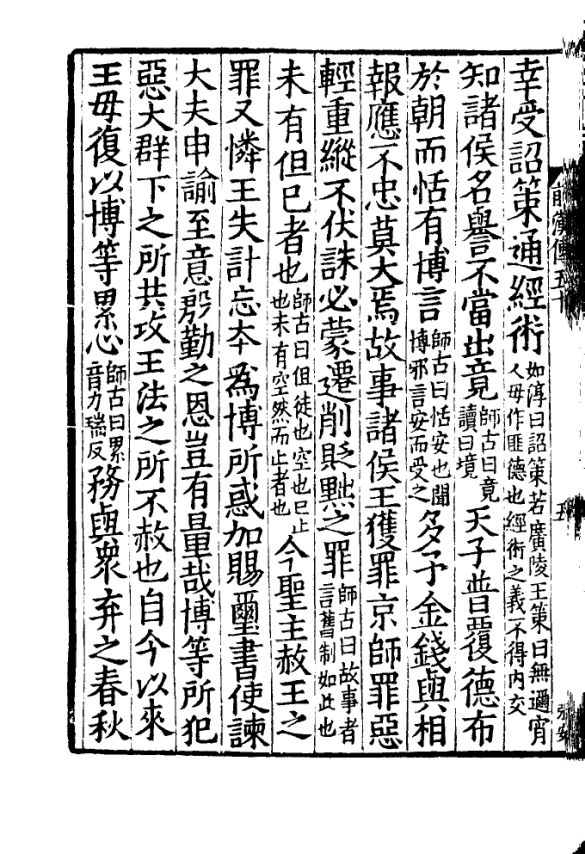 幸受詔策通經術如淳曰詔策若廣陵王策曰無邇宵人毋作匪德也經術之義不得內交
知諸侯名譽不當出竟師古曰竟讀曰境天子普覆德布
於朝而恬有博言師古曰恬安也聞博邪言安而受之多予金錢與相
報應不忠莫大焉故事諸侯王獲罪京師罪惡
輕重縱不伏誅必蒙遷削貶黜之罪師古曰故事者言舊制如此也
未有但已者也師古曰但徒也空也已止也未有空然而止者也今聖主赦王之
罪又憐王失計忘本為博所惑加賜璽書使諫
大夫申諭至意殷勤之恩豈有量哉博等所犯
惡大群下之所共攻王法之所不赦也自今以來
王毋復以博等累心師古曰累音力瑞反務與眾棄之春秋